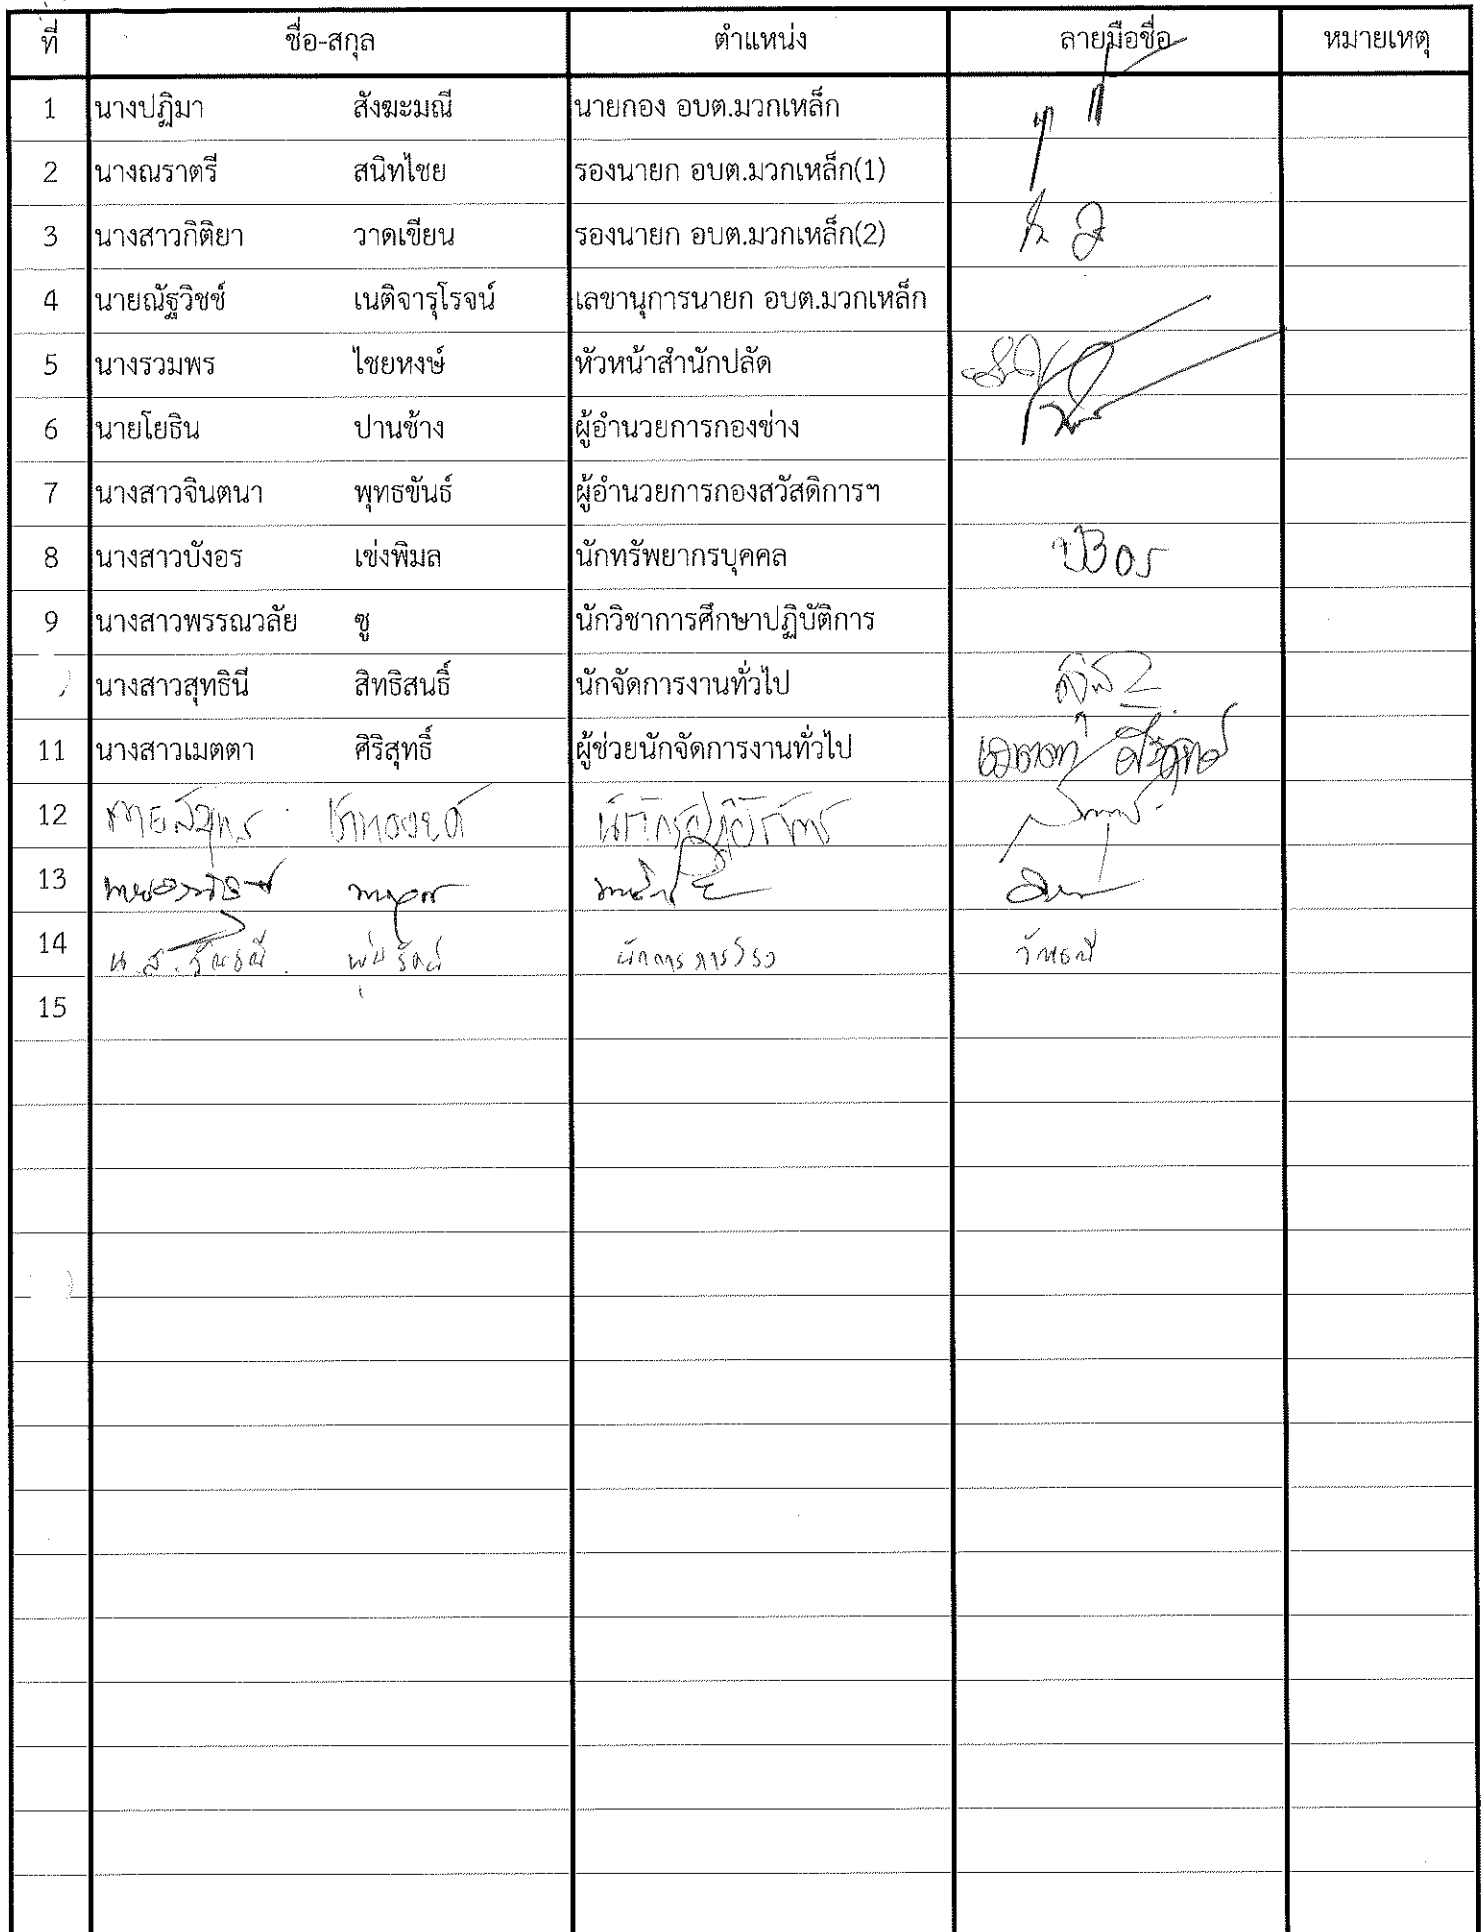 ที่ ชื่อ-สกุล ตำแหน่ง ลายมือชื่อ หมายเหตุ
1 นางปฏิมา สังฆะมณี นายกอง อบต.มวกเหล็ก
2 นางณราตรี สนิทไชย รองนายก อบต.มวกเหล็ก(1)
3 นางสาวกิติยา วาดเขียน รองนายก อบต.มวกเหล็ก(2)
4 นายณัฐวิชช์ เนติจารุโรจน์ เลขานุการนายก อบต.มวกเหล็ก
5 นางรวมพร ไชยหงษ์ หัวหน้าสำนักปลัด
6 นายโยธิน ปานช้าง ผู้อำนวยการกองช่าง
7 นางสาวจินตนา พุทธขันธ์ ผู้อำนวยการกองสวัสดิการฯ
8 นางสาวบังอร เข่งพิมล นักทรัพยากรบุคคล บังอร
9 นางสาวพรรณวลัย ซู นักวิชาการศึกษาปฏิบัติการ
นางสาวสุทธินี สิทธิสนธิ์ นักจัดการงานทั่วไป
11 นางสาวเมตตา ศิริสุทธิ์ ผู้ช่วยนักจัดการงานทั่วไป เมตตา ศิริสุทธิ์
12
13
14 น.ส.
15